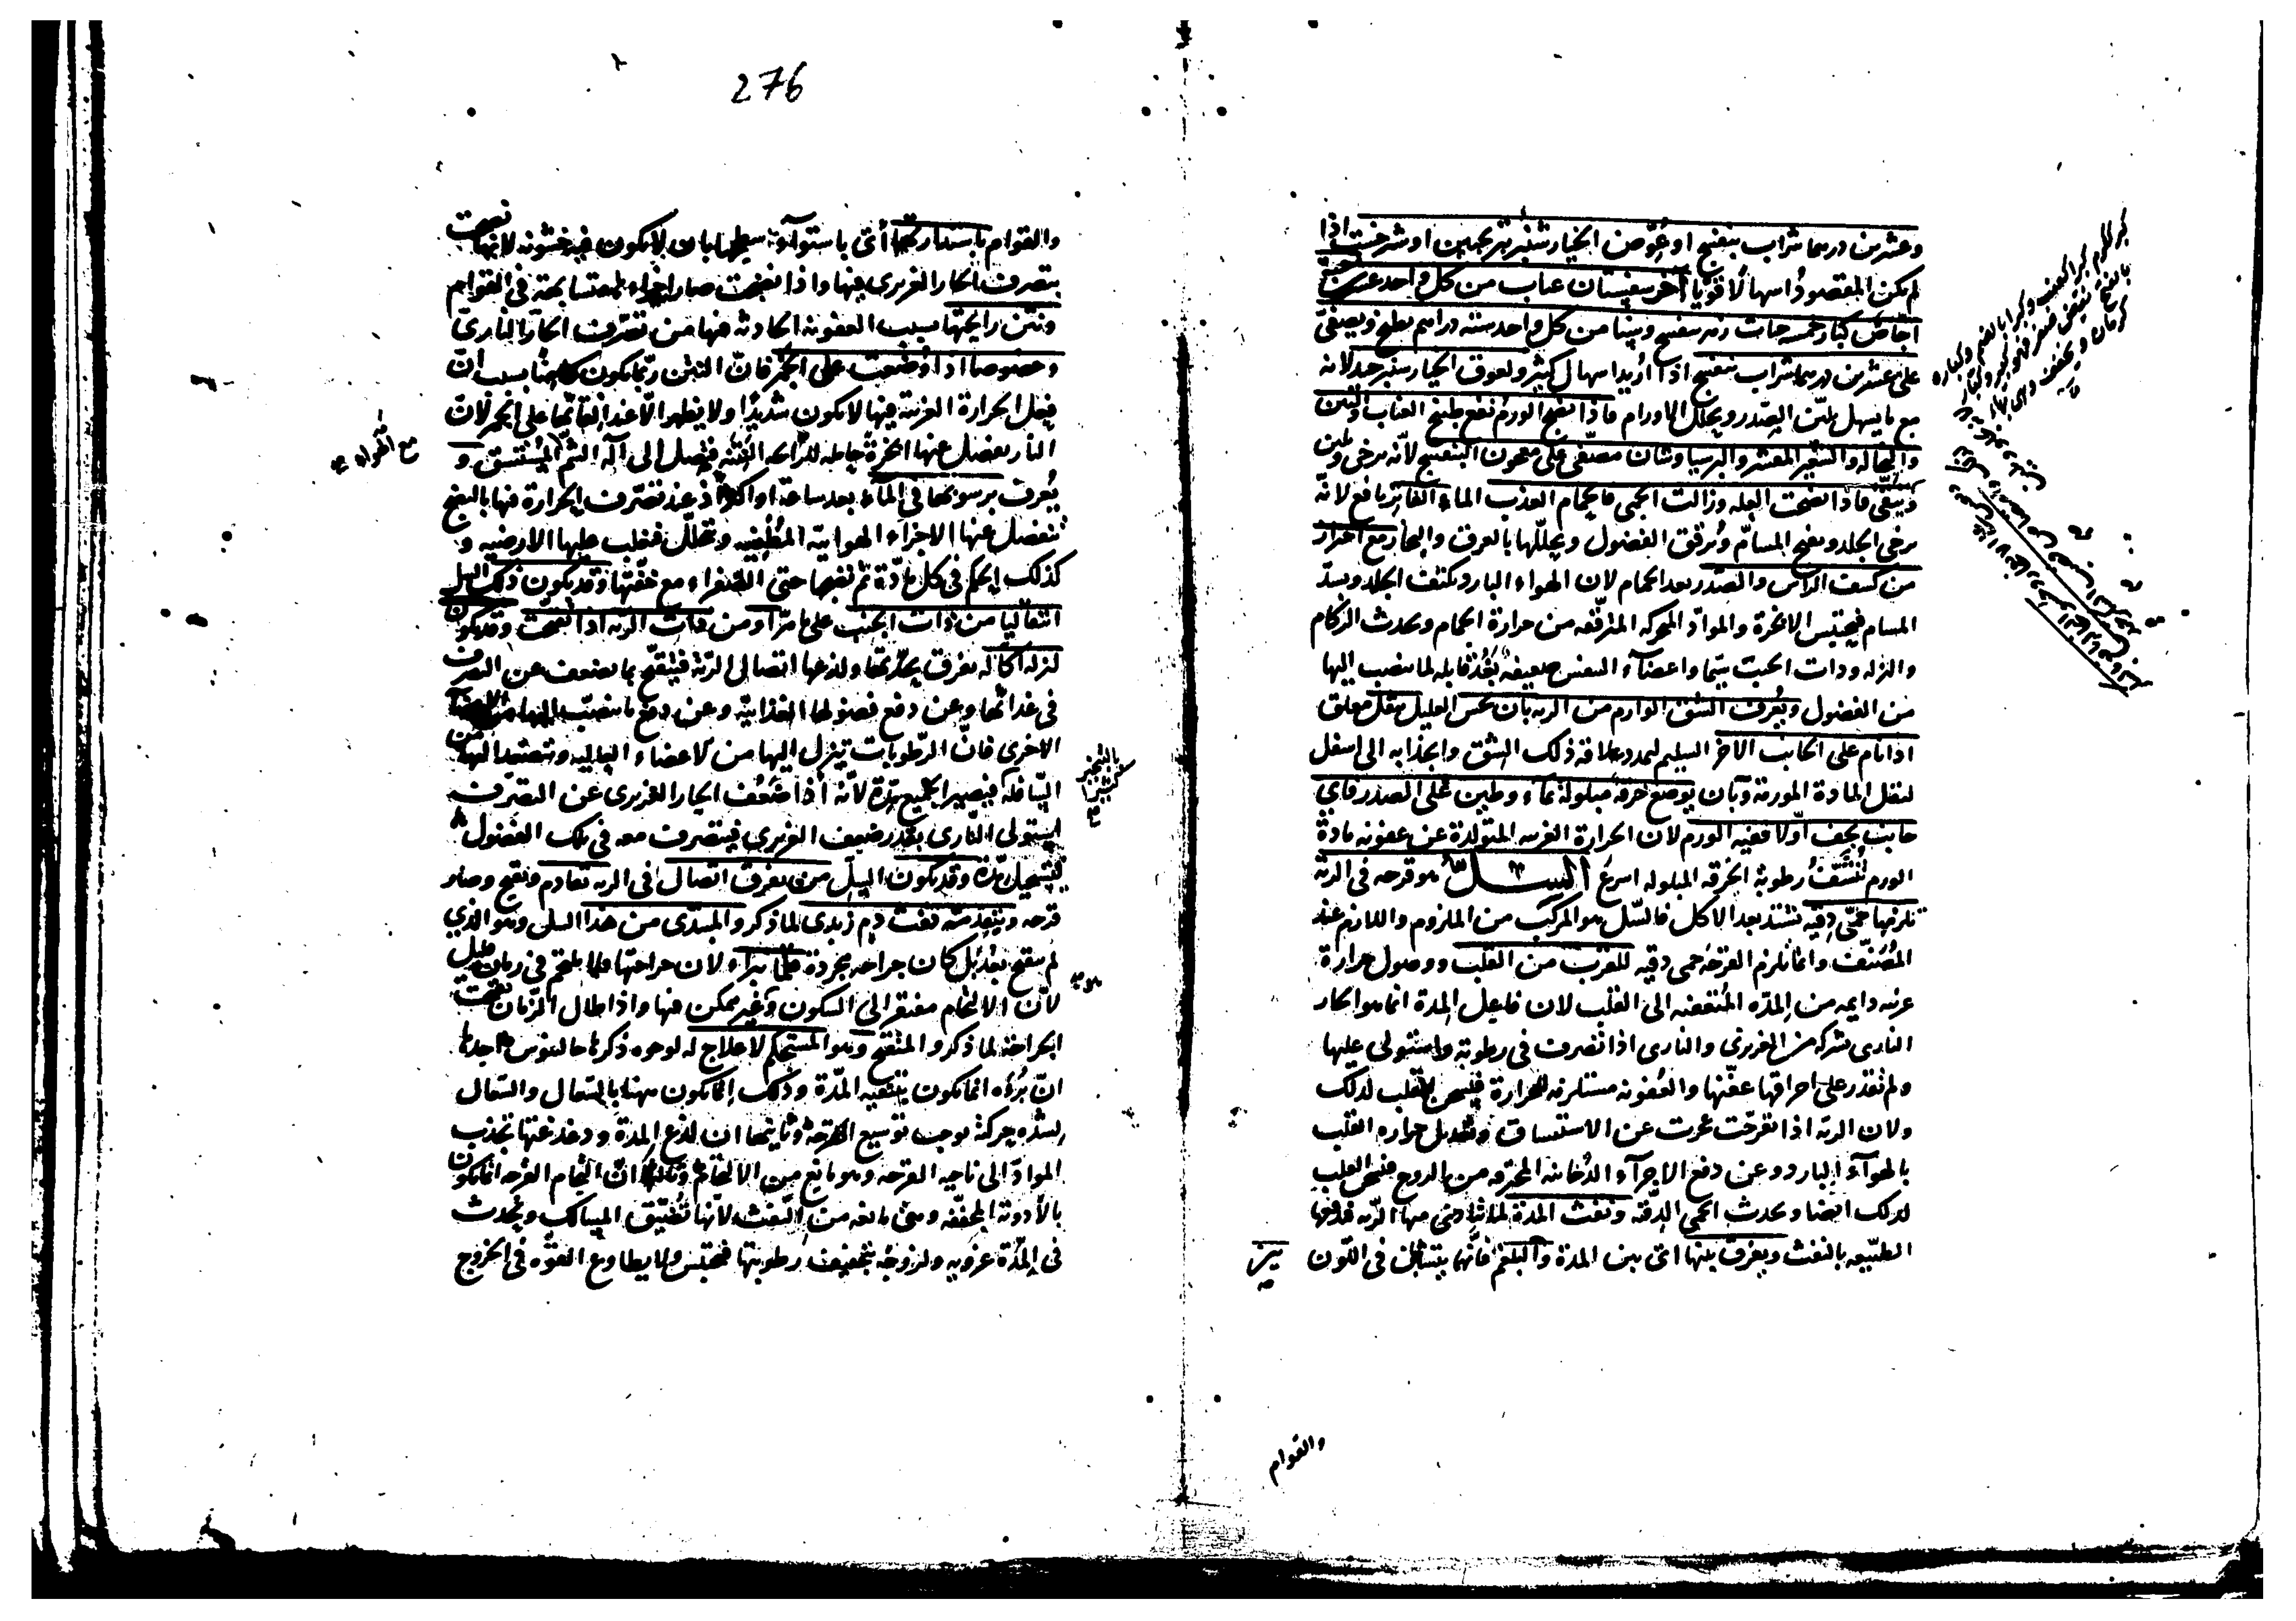 276
وعشرين درهما شراب بنفسج او عوّض الخيارشنبر بترنجبين او شيرخشت اذا
لم يكن المقصود اسهالا قويا آخر سفستان عناب من كل واحد عشرين حبة
اجاص كبار خمسة حبات زهر بنفسج وبينا من كل واحد ستة دراهم يطبخ ويصفى
على عشرين درهما شراب بنفسج اذا اريد اسهال كثير ولعوق الخيارشنبر جيد لانه
مع ما يسهل يلين الصدر ويحلل الاورام فاذا نضج الورم نفع طبيخ العناب والتين
والنخالة والشعير المقشر والبرسياوشان مصفى على معجون البنفسج لانه يرخى ويلين
وينقى فاذا نضجت العلة وزالت الحمى فالحمام العذب الماء الفاتر نافع لانه
يرخى الجلد ويفتح المسام ويرقق الفضول ويحللها بالعرق والبخار مع احتراز
من كشف الراس والصدر بعد الحمام لان الهواء البارد يكثف الجلد ويسد
المسام فيحتبس الابخرة والمواد المتحركة المترققة من حرارة الحمام ويحدث الزكام
والنزلة وذات الجنب سيما واعضاء النفس ضعيفة بعد قابلة لما ينصب اليها
من الفضول ويعرف الشق الوارم من الرية بان يحس العليل بثقل معلق
اذا نام على الجانب الآخر السليم لتمدد علاقة ذلك الشق وانجذابه الى اسفل
لثقل المادة المورمة وبان يوضع خرقة مبلولة بماء وطين على الصدر فاي
جانب يجف اولا ففيه الورم لان الحرارة الغريبة المتولدة عن عفونة مادة
الورم تنشف رطوبة الخرقة المبلولة اسرع السل هو قرحة فى الرية
تلزمها حمى دقية تشتد بعد الاكل فالسل هو المركب من الملزوم واللازم عند
المصنف وانما تلزم القرحة حمى دقية للقرب من القلب ووصول حرارة
غريبة دايمة من المدة المتعفنة الى القلب لان فاعل المدة انما هو الحار
النارى بشركة من الغريزى والنارى اذا تصرف فى رطوبة واستولى عليها
ولم يقدر على احراقها عفنها والعفونة مستلزمة للحرارة فيسخن القلب لذلك
ولان الرية اذا تقرحت عجزت عن الاستنشاق وتعديل حرارة القلب
بالهواء البارد وعن دفع الاجزاء الدخانية المحترقة من الروح فيسخن القلب
لذلك ايضا ويحدث الحمى الدقية ونفث المدة لما تتاذى منها الرية فتدفعها
الطبيعة بالنفث ويفرق بينها اى بين المدة والبلغم فانهما يتشابهان فى اللون
والقوام
والقوام باستدارتها اى باستواء سطحها بان لا يكون فيه خشونة لانها نضجت
بتصرف الحار الغريزى فيها واذا نضجت صار اجزاءها متشابهة فى القوام
ونتن رايحتها بسبب العفونة الحادثة فيها من تصرف الحار النارى
وخصوصا اذا وضعت على الجمر فان النتن ربما يكون كامنا بسبب ان
فعل الحرارة الغريبة فيها لا يكون شديدا ولا يظهر الا عند القائها على الجمر لان
النار تفصل عنها ابخرة حاملة للرايحة النتنة فيصل الى آلة الشم المستنشق و
يعرف برسوبها فى الماء بعد ساعة او اكثر اذ عند تصرف الحرارة فيها بالنضج
تنفصل عنها الاجزاء الهوائية المطفية وتتحلل فتغلب عليها الارضية و
كذلك الحكم فى كل مادة تم نضجها حتى الصفراء مع خفتها وقد يكون ذلك السل
انتقاليا من ذات الجنب على ما مر او من ذات الرية اذا نضجت وقد يكون
لنزلة اكالة تفرق بحدتها ولذعها اتصال الرية فيتقيح بما يضعف عن التصرف
فى غذائها وعن دفع فضولها الغذائية وعن دفع ما ينصب اليها من الاعضاء
الاخرى فان الرطوبات تنزل اليها من الاعضاء العالية وتتصعد اليها من
السافلة فيصير الجميع مدة لانه اذا ضعف الحار الغريزى عن التصرف
استولى النارى بقدر ضعف الغريزى فيتصرف معه فى تلك الفضول
فيستحيل مدة وقد يكون السل من تفرق اتصال فى الرية تقادم وتقيح وصار
قرحة ويتقدمه نفث دم زبدى لما ذكر والمبتدى من هذا السل وهو الذى
لم يتقيح بعد بل كان جراحة مجردة قلما يبراء لان جراحتها قلما يلتحم فى زمان قليل
لان الالتحام مفتقر الى السكون وغير ممكن فيها واذا طال الزمان تقيحت
الجراحة لما ذكر والمتقيح وهو المستحكم لا علاج له لوجوه ذكرها جالينوس احدها
ان برؤه انما يكون بتنقية المدة وذلك انما يكون ههنا بالسعال والسعال
لشدة حركته يوجب توسيع القرحة وثانيها ان لذع المدة ودغدغتها تجذب
المواد الى ناحية القرحة وهو مانع من الالتحام وثالثها ان التحام القرحة انما يكون
بالادوية المجففة وهى مانعة من النفث لانها تضيق المسالك ويحدث
فى المدة غروية ولزوجة بتجفيف رطوبتها فتحتبس ولا يطاوع القوة فى الخروج